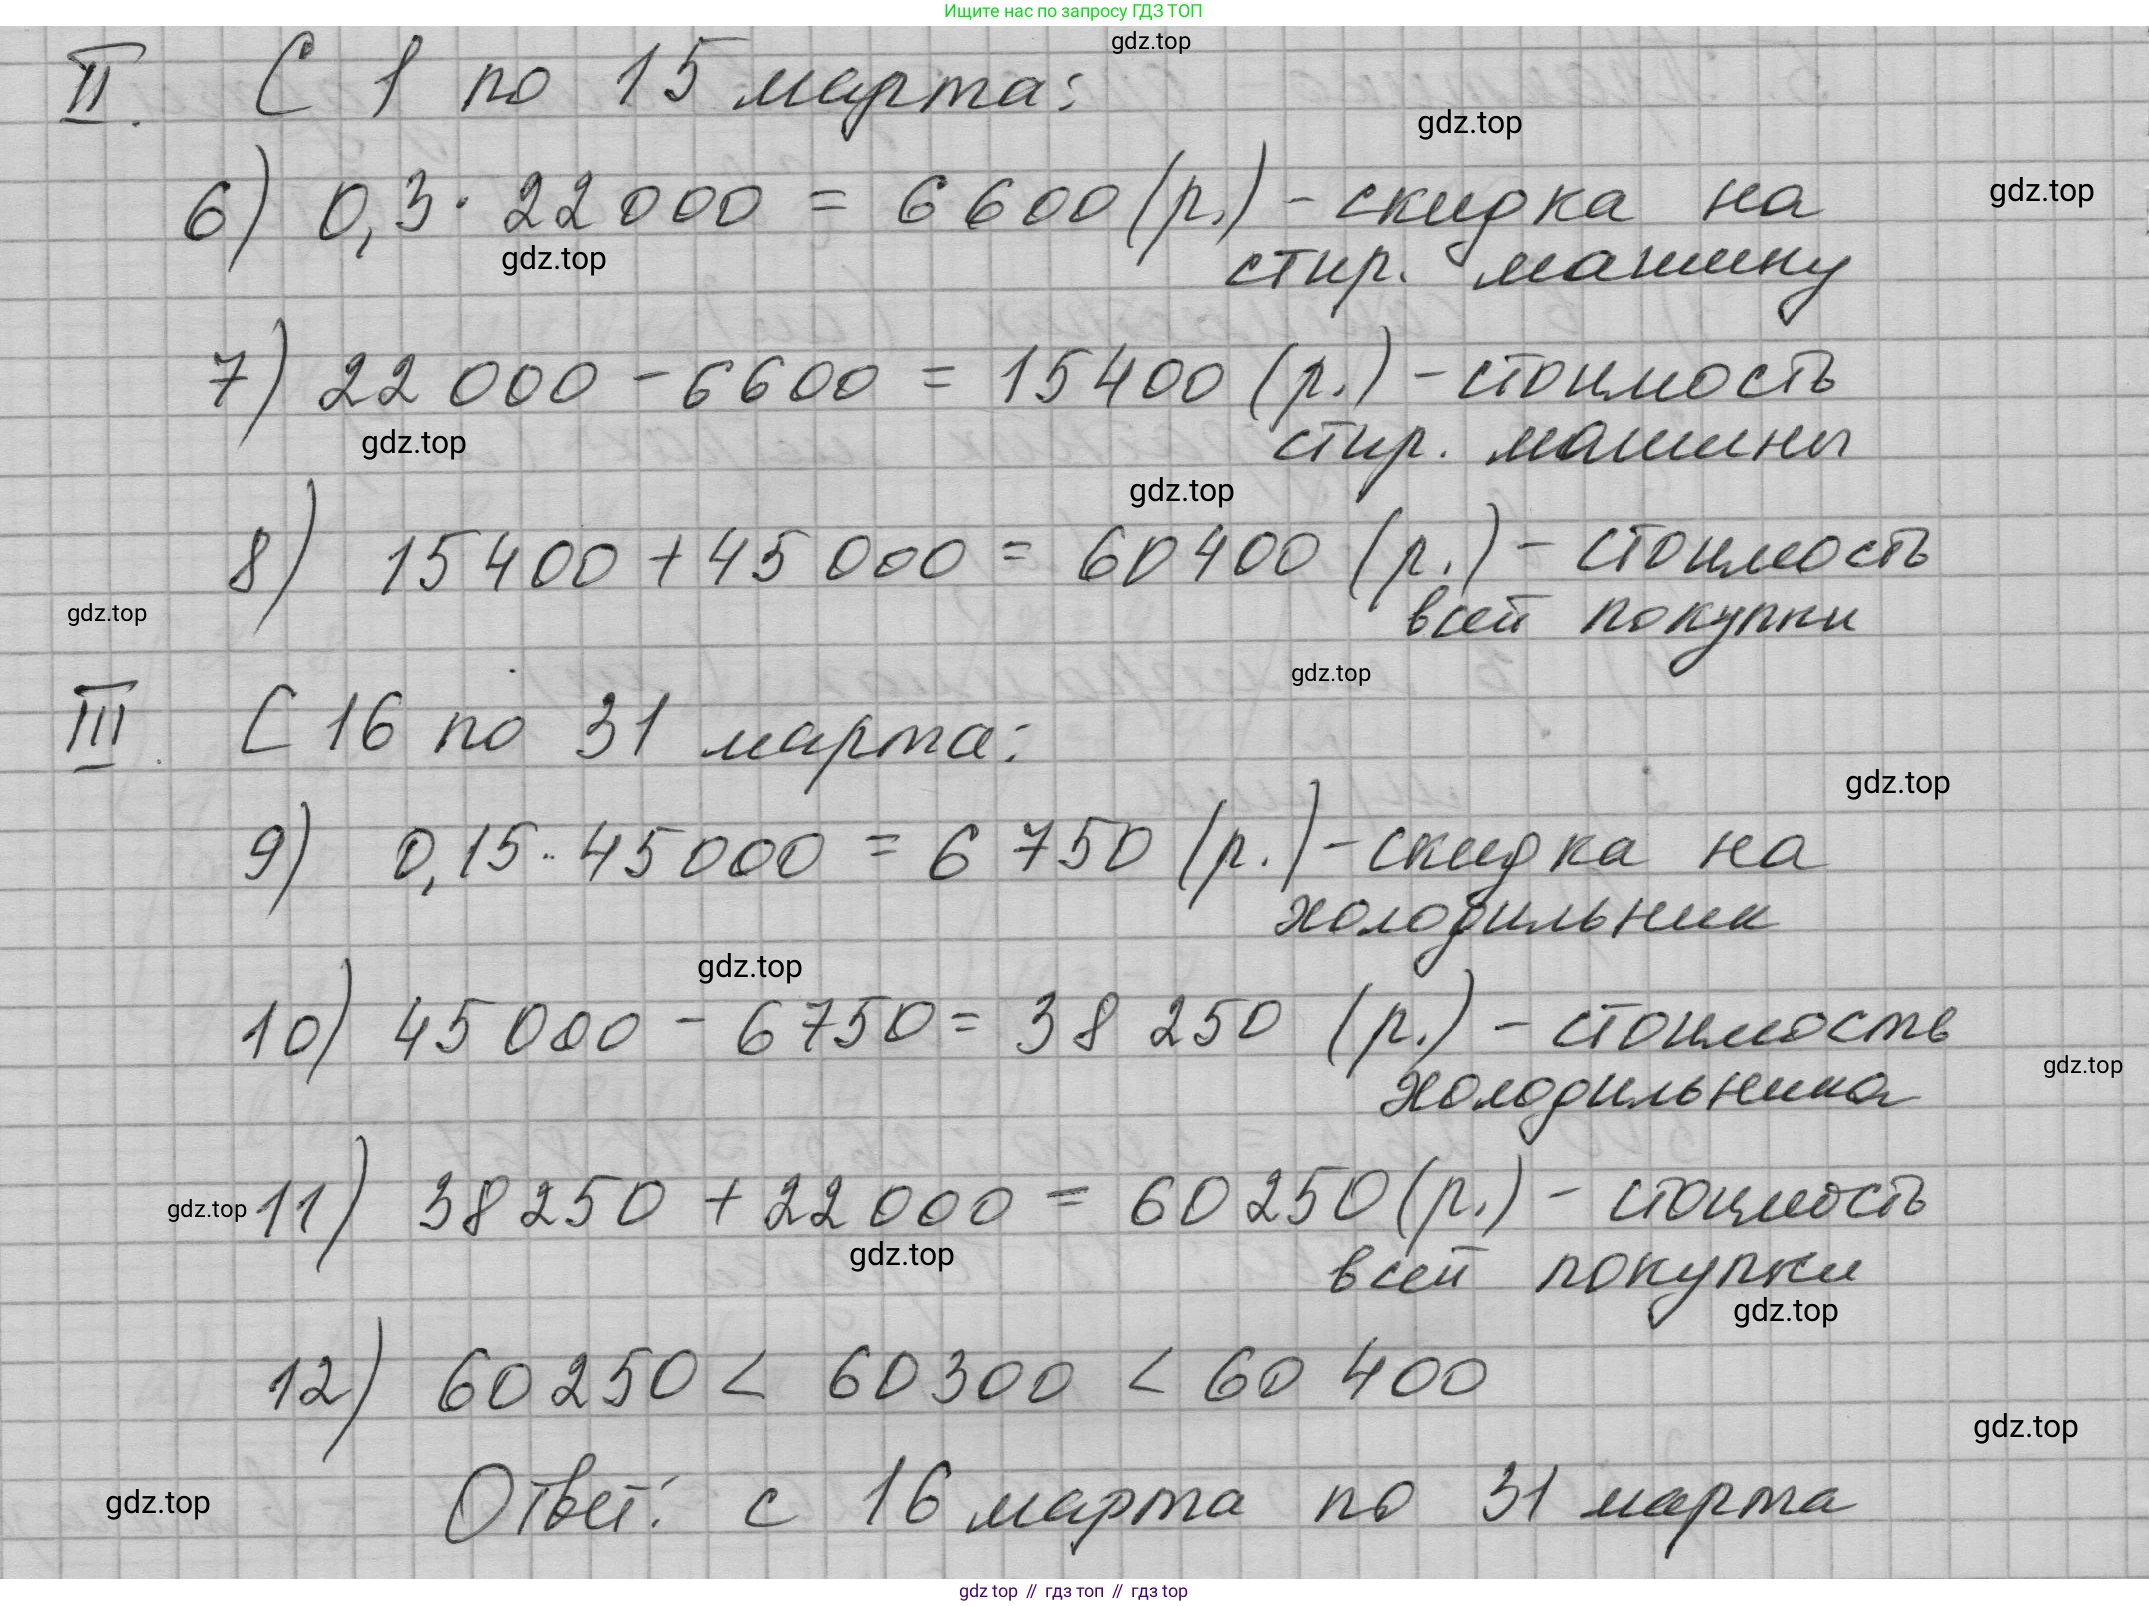 Ищите нас по запросу ГДЗ ТОП
gdz.top
II. С 1 по 15 марта:
gdz.top
6) 0,3 · 22 000 = 6 600 (р.) - скидка на
gdz.top
стир. машину
gdz.top
7) 22 000 - 6600 = 15400 (р.) - стоимость
стир. машины
gdz.top
gdz.top
8) 15 400 + 45 000 = 60 400 (р.) - стоимость
всей покупки
gdz.top
gdz.top
III. С 16 по 31 марта:
gdz.top
9) 0,15 · 45 000 = 6 750 (р.) - скидка на
холодильник
gdz.top
10) 45 000 - 6750 = 38 250 (р.) - стоимость
холодильника
gdz.top
11) 38 250 + 22 000 = 60 250 (р.) - стоимость
gdz.top
всей покупки
gdz.top
gdz.top
12) 60 250 < 60 300 < 60 400
gdz.top
Ответ: с 16 марта по 31 марта
gdz.top
gdz top // гдз топ // гдз top